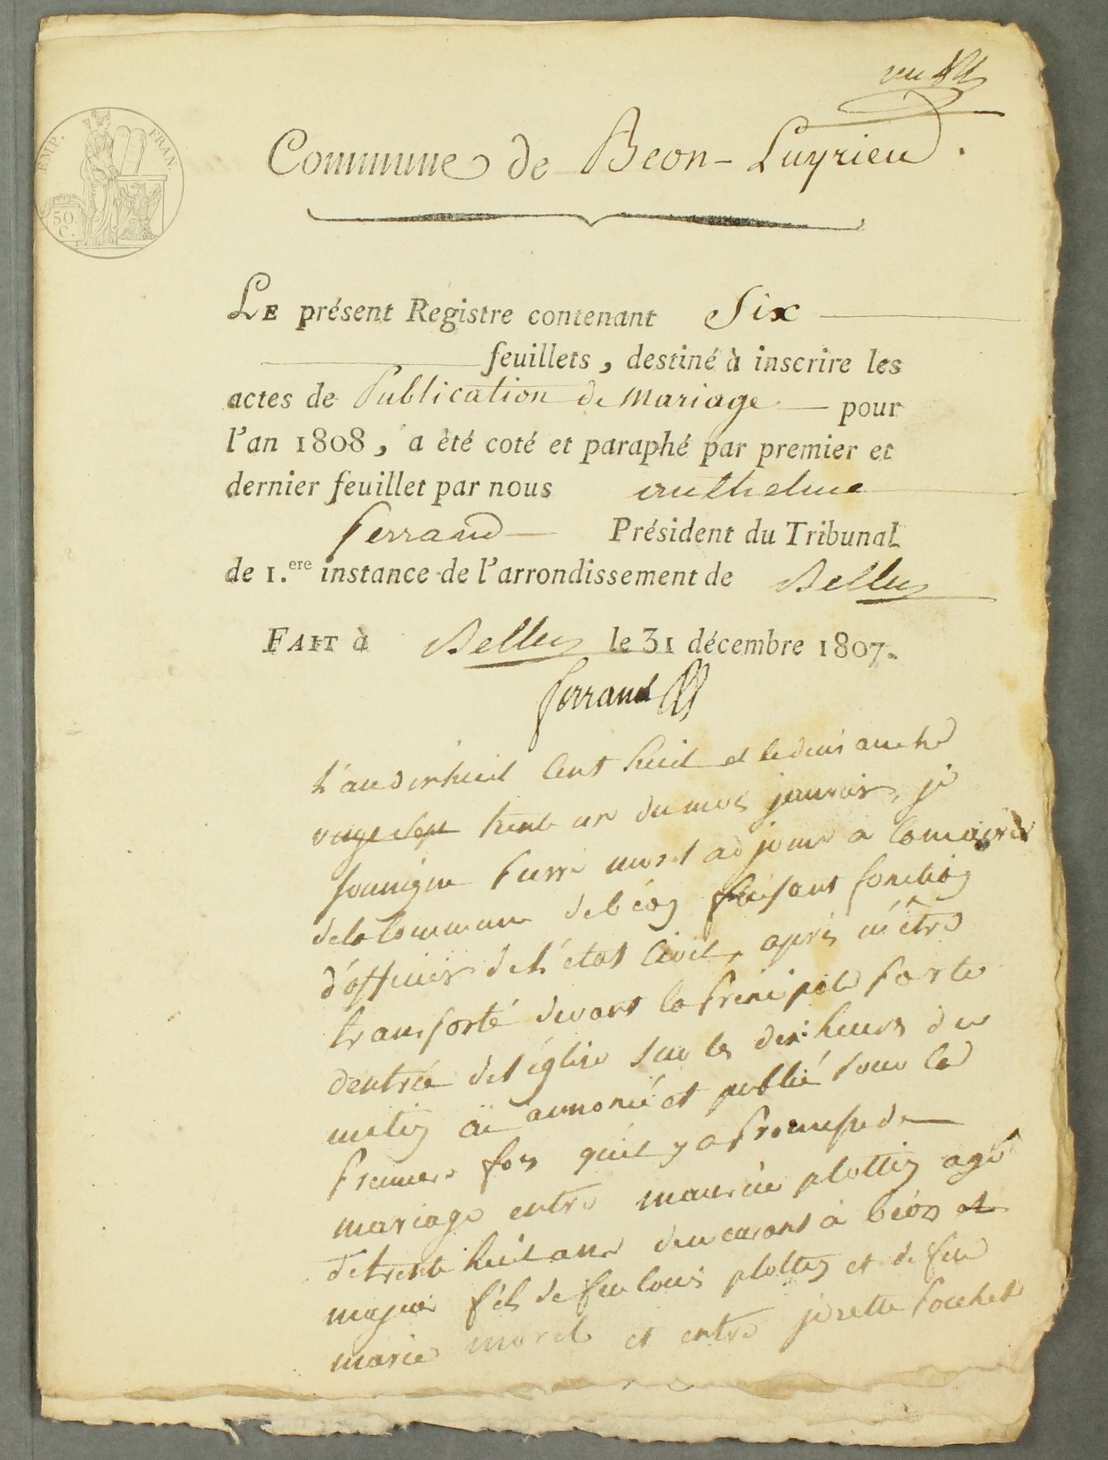 vu
EMP. FRAN.
50 C.
Commune de Beon-Luyrieu.
LE présent Registre contenant Six
feuillets, destiné à inscrire les
actes de Publication de Mariage pour
l'an 1808, a été coté et paraphé par premier et
dernier feuillet par nous anthelme
ferrand Président du Tribunal
de 1.ere instance de l'arrondissement de Belley
FAIT à Belley le 31 décembre 1807.
ferrand
L'an dixhuit Cent huit et le dimanche
vingt sept trente un du mois janvier, je
soussigne pierre morel adjoint a la mairie
de la Commune de béon faisant fonction
d'officier de L'état Civil, après m'être
transporté devant la principale porte
dentrée de l'église sur les dix heures du
matin ai annoncé et publié pour la
premiere fois quil y a promesse de
mariage entre maurice plottin agé
de trente huit ans demeurant à béon et
majeur fils de feu louis plottin et de feue
marie morel et entre josette pochet